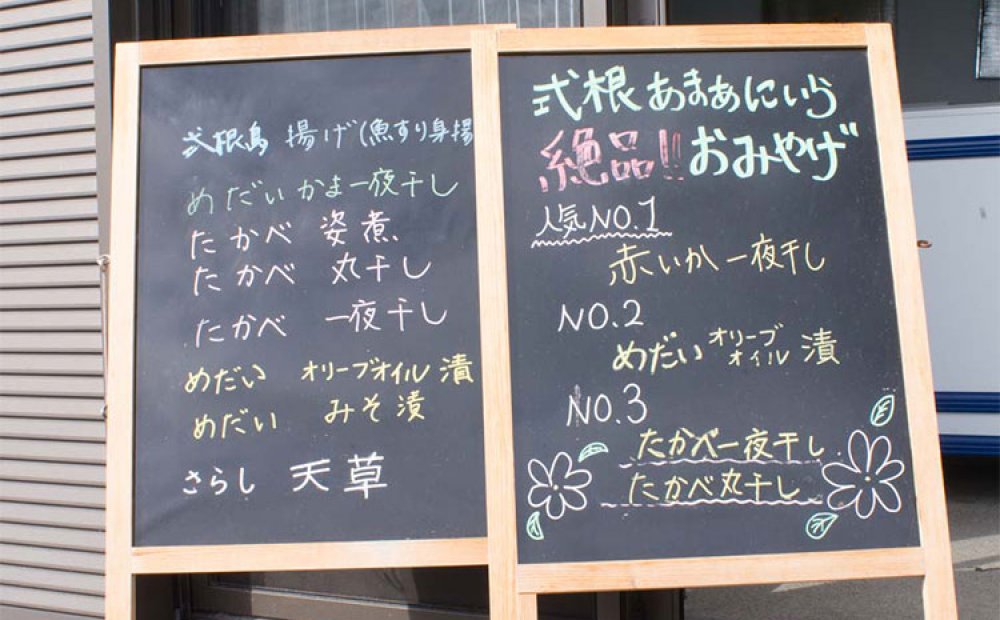 式根島 揚げ(魚すり身揚
めだいかま一夜干し
たかべ 姿煮
たかべ 丸干し
たかべ 一夜干し
めだい オリーブオイル漬
めだい みそ漬
さらし 天草
式根 あまあにいら
絶品!! おみやげ
人気NO.1
赤いか一夜干し
NO.2
めだいオリーブオイル漬
NO.3
たかべ一夜干し
たかべ丸干し